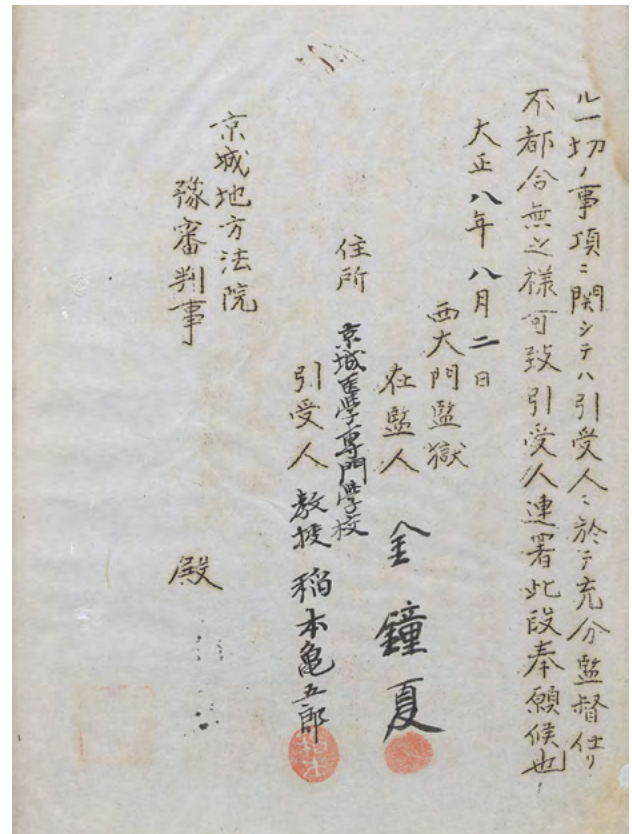 ル一切ノ事項ニ関シテハ引受人ニ於テ充分監督仕リ
不都合無之様可致引受人連署此段奉願候也
大正八年八月二日
西大門監獄
在監人 金鐘夏
住所 京城医学専門学校
引受人 教授 稲本亀五郎
京城地方法院
豫審判事 殿